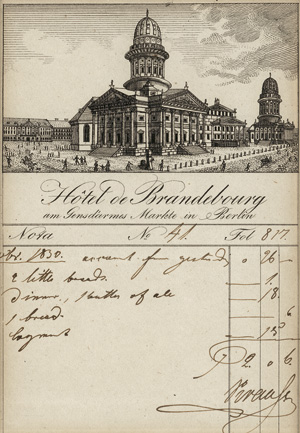 Hôtel de Brandebourg
am Gensdarmes Markte in Berlin
Nota No 41. Fol 817.
1830. account for 0 26 —
2 little breads — 1 —
Dinner, 1 bottle of ale — 18.
1 bread 6
15
2 . 0 . 6
Krause